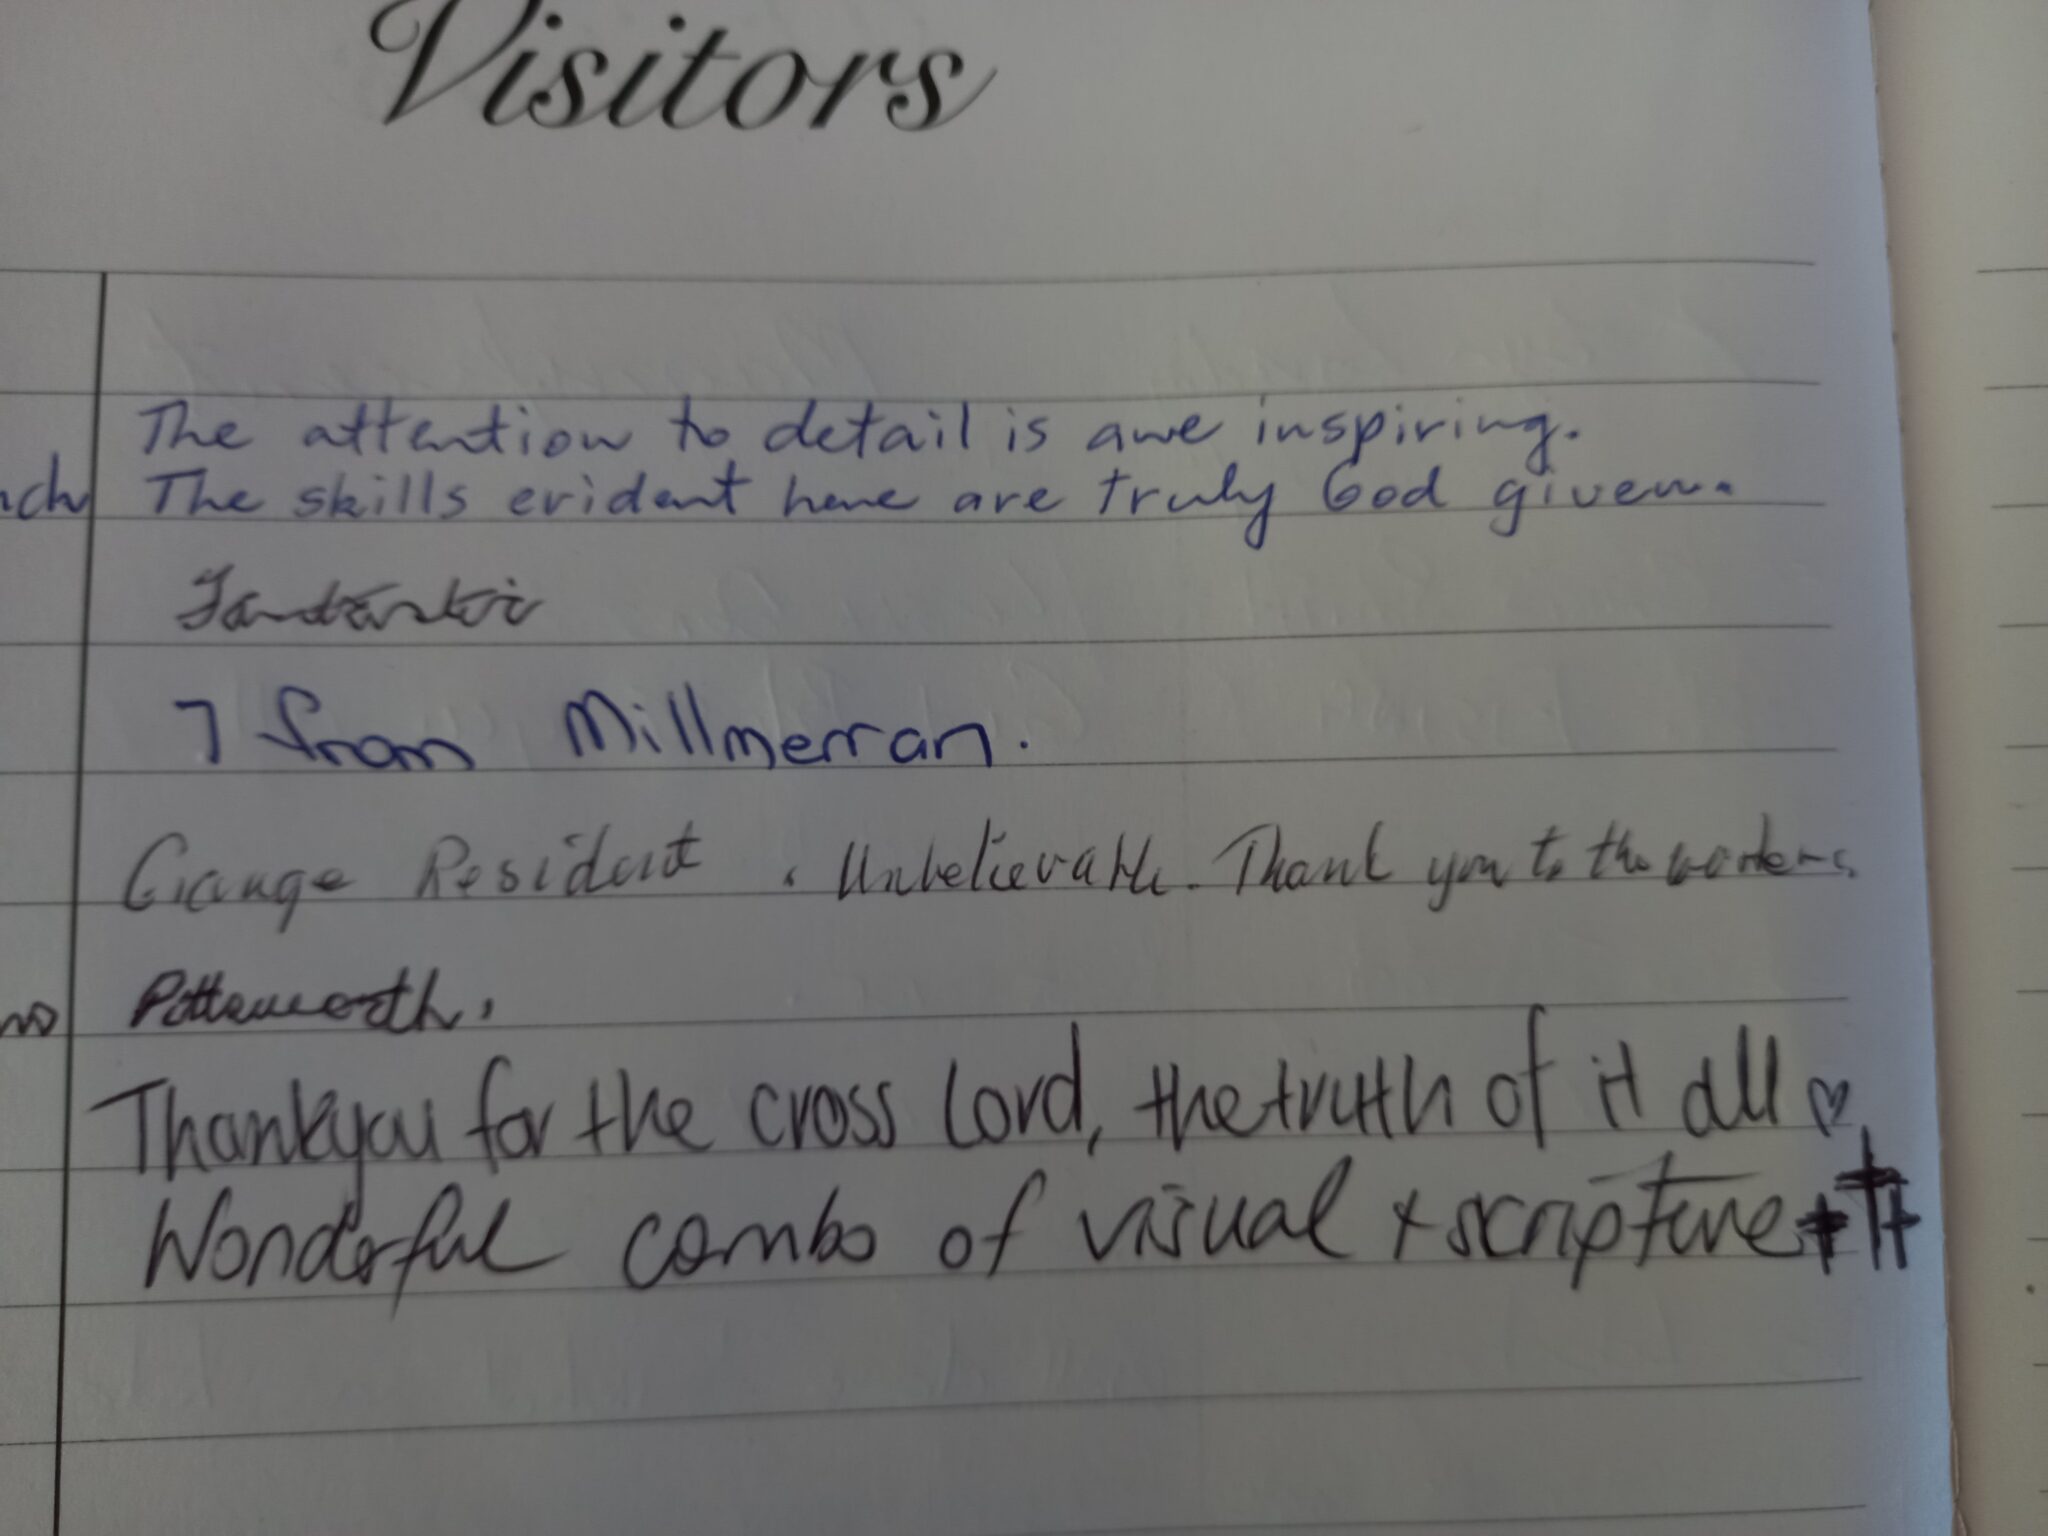 Visitors
The attention to detail is awe inspiring.
nch The skills evident here are truly God given.
Fantastic
7 from Millmerran.
Grange Resident. Unbelievable. Thank you to the workers.
Thankyou for the cross Lord, the truth of it all ♡
Wonderful combo of visual + scripture